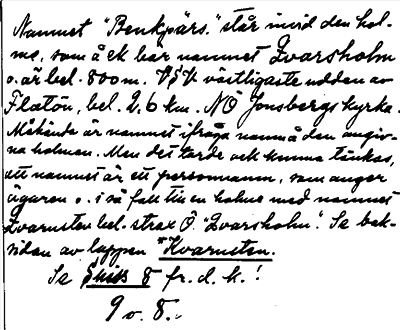 Namnet "Benkpärs." står invid den hol-
me, som å ek bär namnet Kvarsholm
o. är bel. 800 m. VSV västligaste udden av
Flatön, bel. 2,6 km. NÖ Jonsbergs kyrka.
Måhända är namnet ifråga namn å den angiv-
na holmen. Men det torde ock kunna tänkas,
att namnet är ett personnamn, som anger
ägaren o. i så fall till en holme med namnet
Kvarnsten bel. strax Ö. "Kvarsholm". Se bak-
sidan av lappen "Kvarnsten.
Se Skiss 8 fr. d. k.!
9 v. 8.